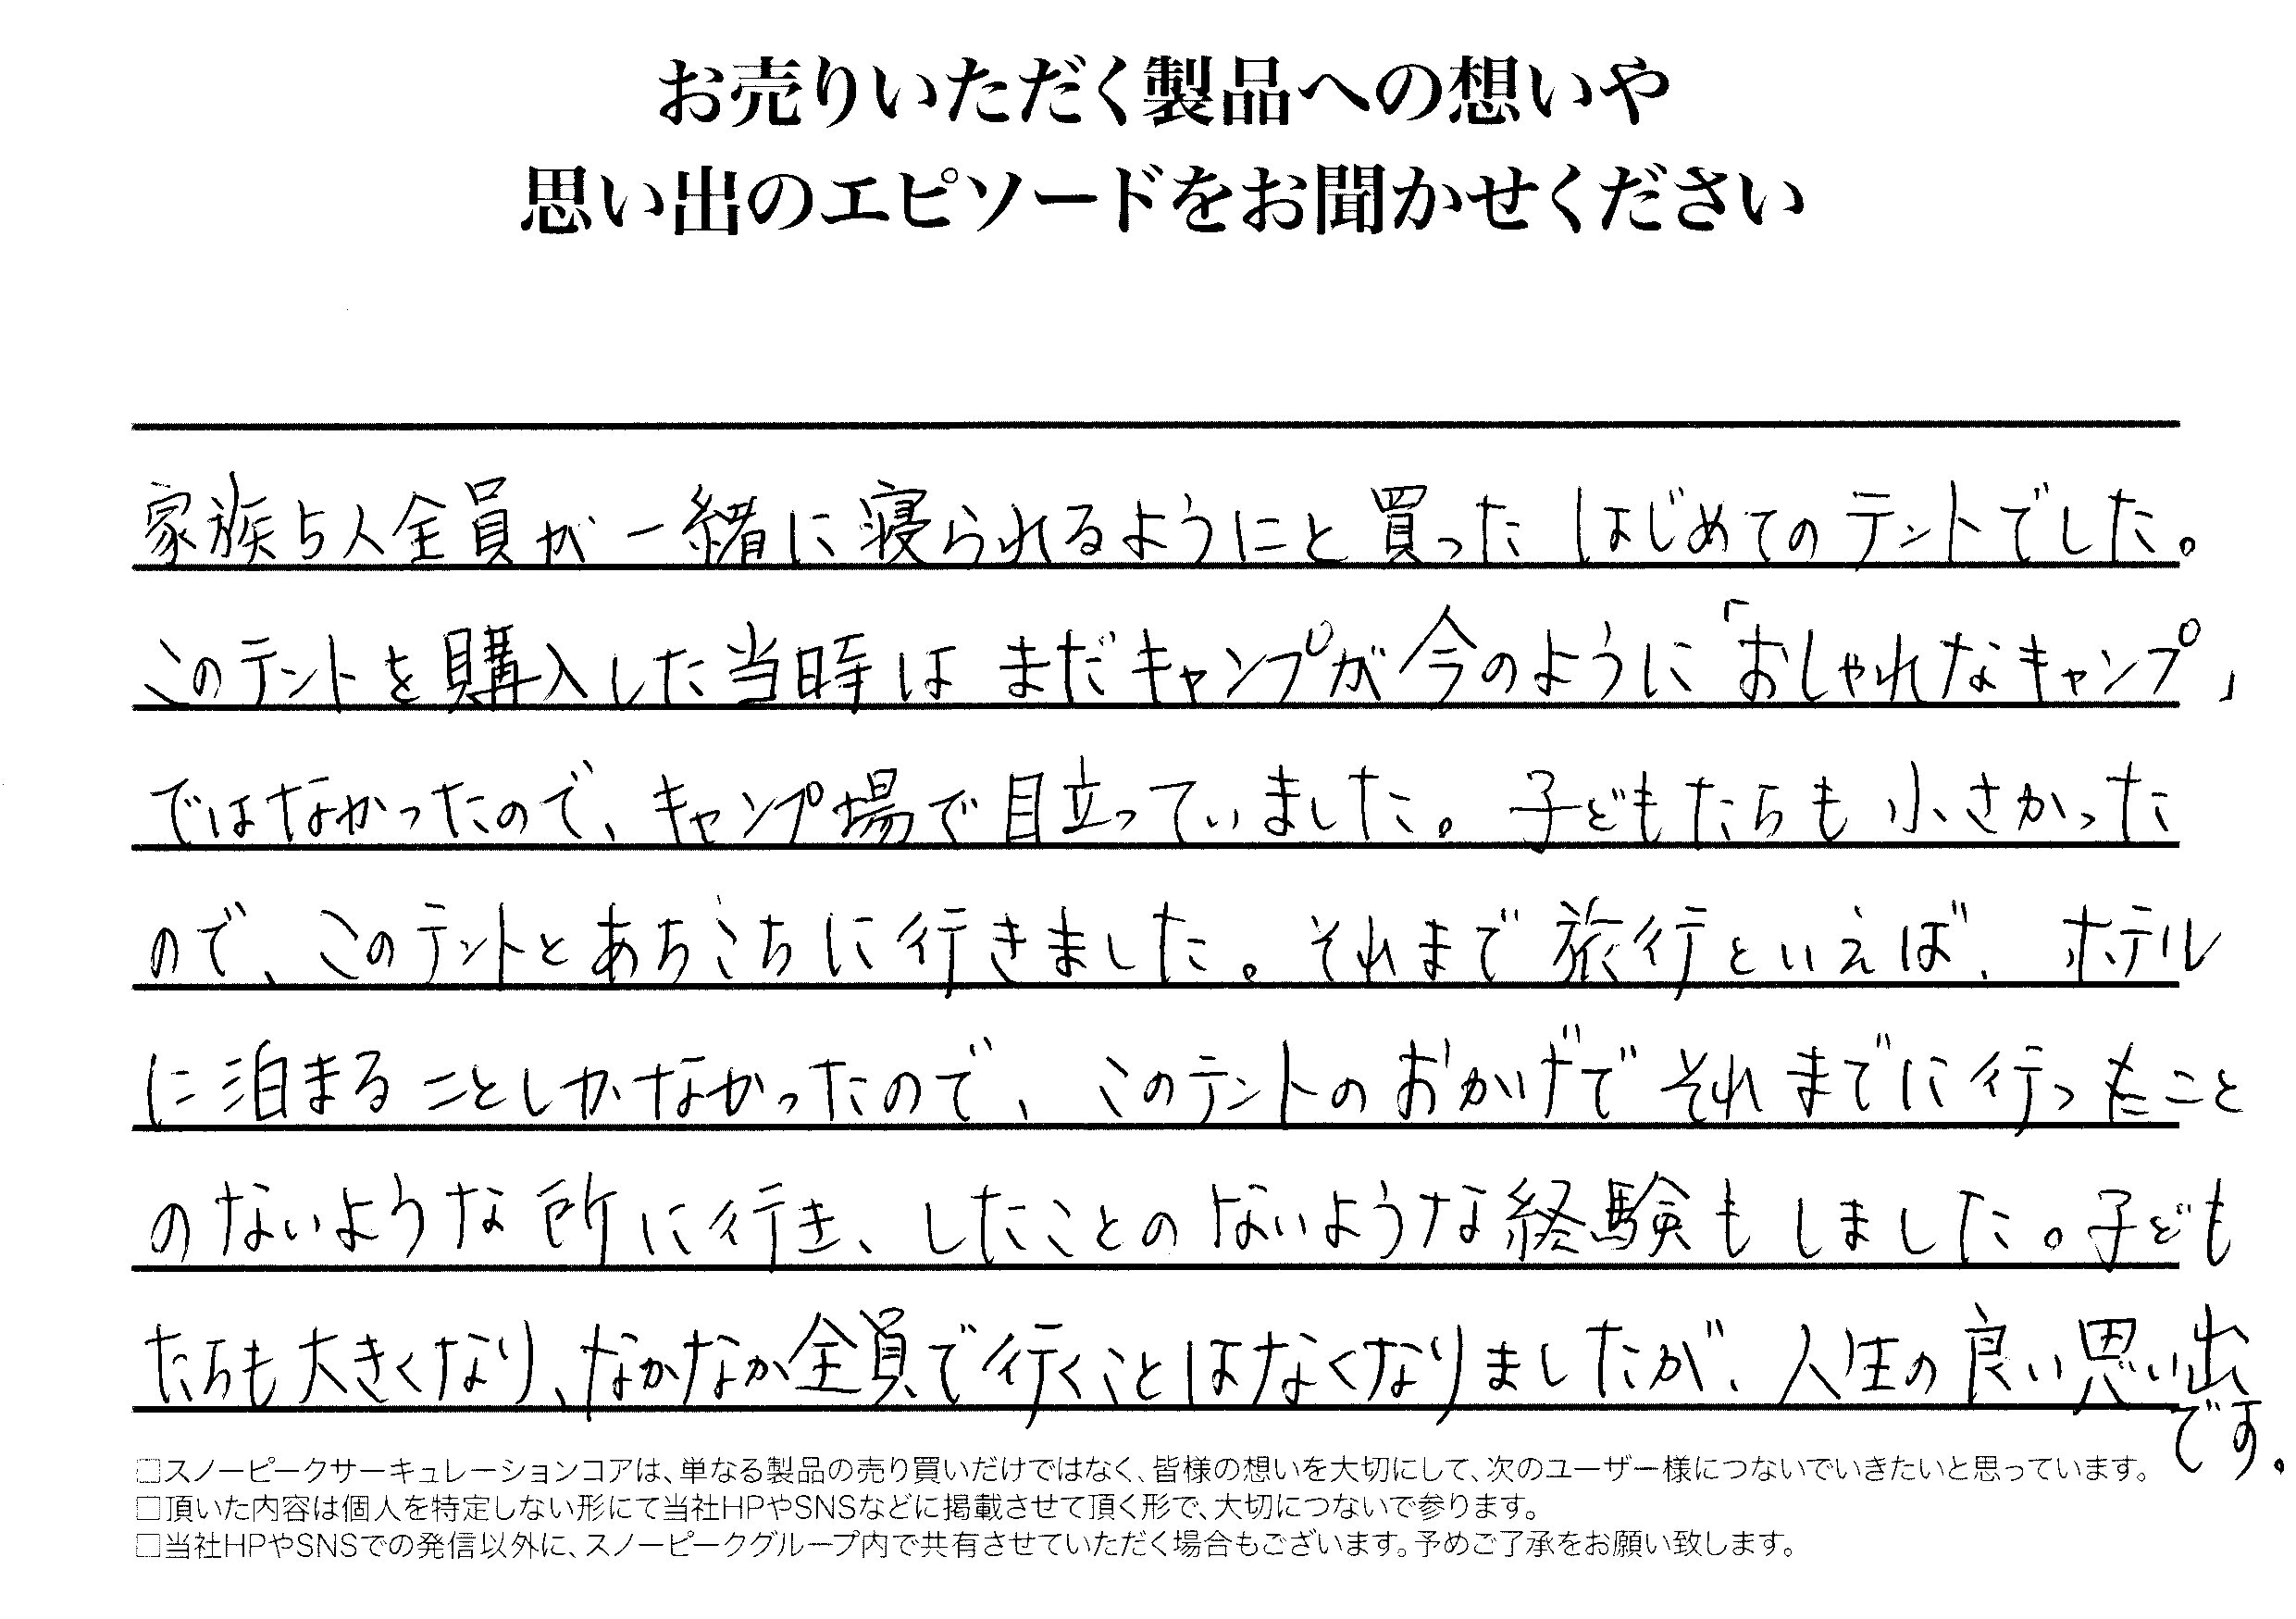 お売りいただく製品への想いや
思い出のエピソードをお聞かせください
家族5人全員が一緒に寝られるようにと買ったはじめてのテントでした。
このテントを購入した当時はまだキャンプが今のように「おしゃれなキャンプ」
ではなかったので、キャンプ場で目立っていました。子どもたちも小さかった
ので、このテントとあちこちに行きました。それまで旅行といえば、ホテル
に泊まることしかなかったので、このテントのおかげでそれまでに行ったこと
のないような所に行き、したことのないような経験もしました。子ども
たちも大きくなり、なかなか全員で行くことはなくなりましたが、人生の良い思い出
です。
□スノーピークサーキュレーションコアは、単なる製品の売り買いだけではなく、皆様の想いを大切にして、次のユーザー様につないでいきたいと思っています。
□頂いた内容は個人を特定しない形にて当社HPやSNSなどに掲載させて頂く形で、大切につないで参ります。
□当社HPやSNSでの発信以外に、スノーピークグループ内で共有させていただく場合もございます。予めご了承をお願い致します。